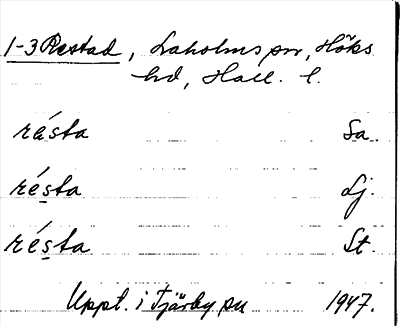 1-3 Restad, Laholms sn, Höks
hd, Hall. l.
rásta Sa.
résta Lj.
résta St.
Uppt. i Tjärby sn 1947.